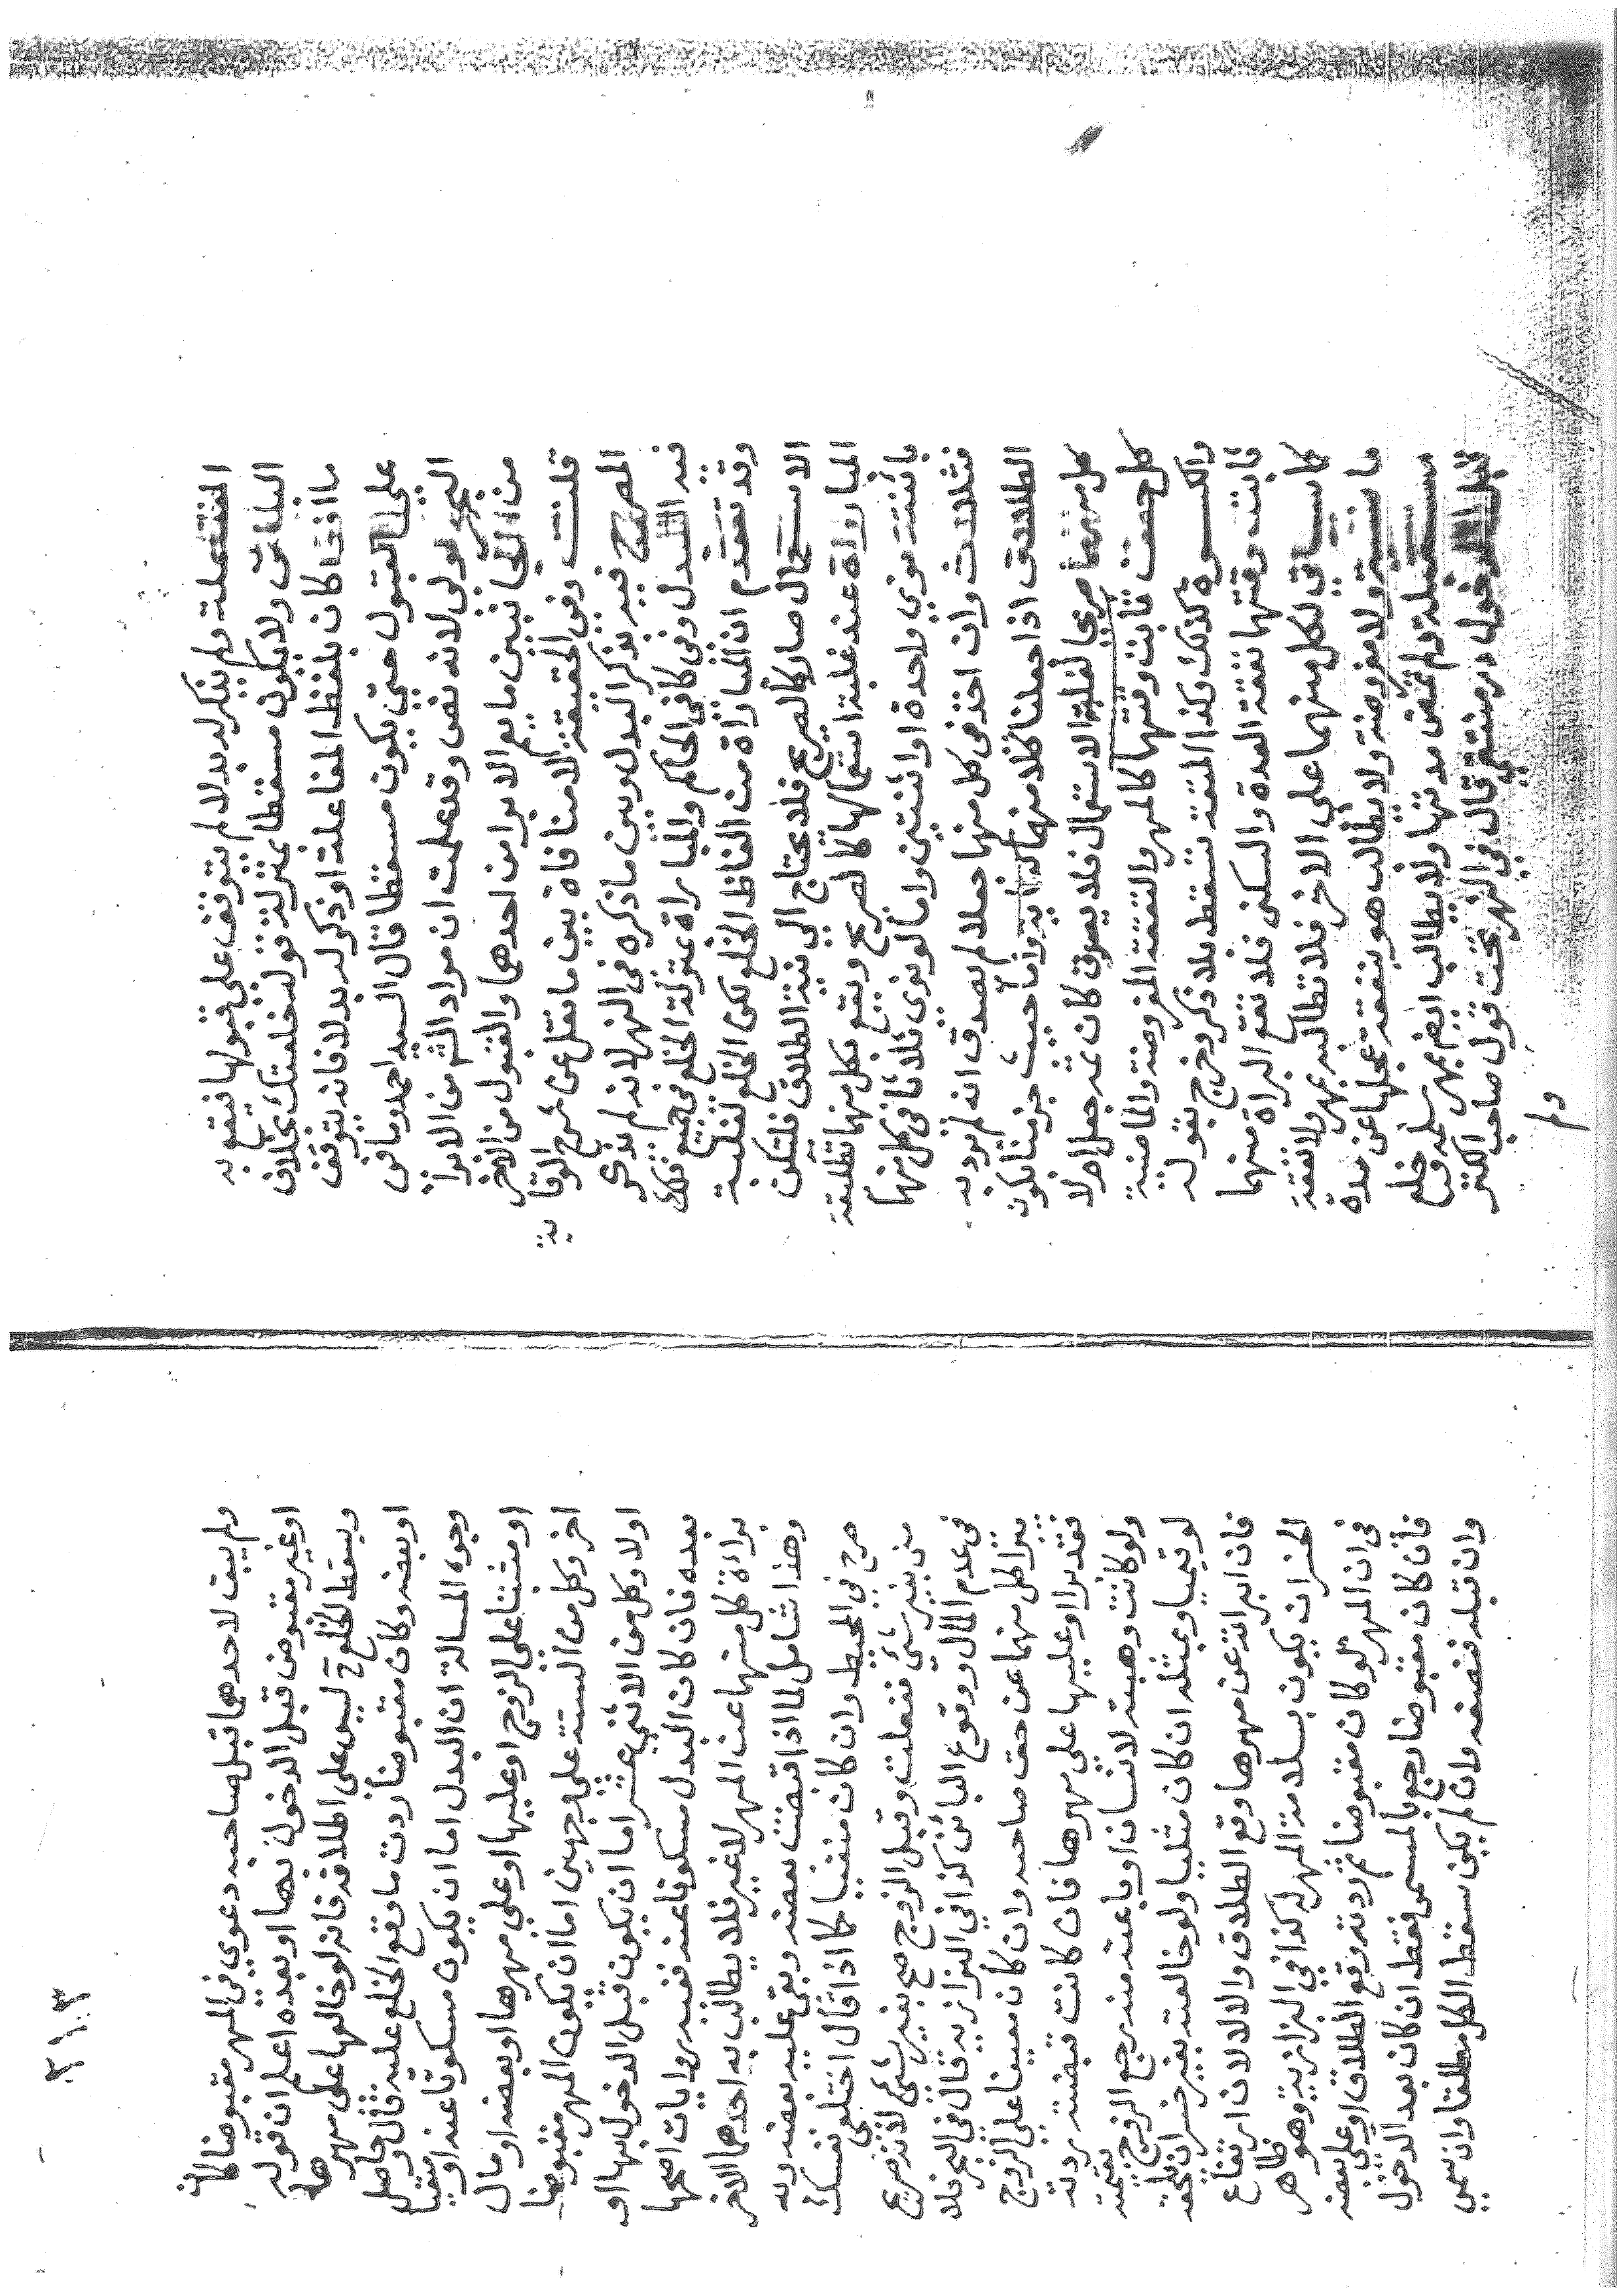 المفاعلة ولم يذكر له بدلا لم يتوقف على قبولها فيقع به
البائن ولا يكون مسقطا بمنزلة قوله خلعتك بخلاف
ما اذا كان بلفظ المفاعلة او ذكر له بدلا فانه يتوقف
على القبول حتى يكون مسقطا قال السيد احمد وما في
البحر اولى لانه نص وقد علمت ان مراد الشم من الابرا
من الجانبين ما يعم الابرا من احدهما والقبول من الاخر
قلت وفي الحقيقة لا منافاة بين ما نقل عن شرح الوقاية
المصرح فيه بذكر البدل وبين ما ذكره في النهر لانه لم يذكر
فيه البدل وفي كافي الحاكم والمباراة بمنزلة الخلع في جميع ذلك
وقد تقدم ان المباراة من الفاظ الخلع لكن الخلع لغلبة
الاستعمال صار كالصريح فلا يحتاج الى نية الطلاق فلتكن
المباراة عند غلبة استعمالها كالصريح ويقع بكل منهما تطليقة
بائنة نوى واحدة او ثنتين واما لو نوى ثلاثا في كل منهما
فثلاث وان اخذ في كل منهما جعلا لم يصدق انه لم يرد به
الطلاق اذا جعلنا كلا منهما كناية واما حيث جزمنا بكون
كل منهما صريحا لغلبة الاستعمال فلا يصدق كان ثم جعل اولا
كل حق ثابت وقتها كالمهر والنفقة المفروضة والماضية
والكسوة كذلك وكذا المتعة تسقط بلا ذكر وخرج بقوله
ثابت وقتها نفقة العدة والسكنى فلا تقع البراة منهما
كما سياتي لكل منهما على الاخر فلا تطالبه بمهر ولا نفقة
ماضية ولا مفروضة ولا يطالب هو بنفقة عجلها عن مدة
مستقبلة ولم تمض مدتها ولا يطالب ايضم بمهر سلمه وقع خلع
قبل الدخول درمنتقى قال في النهر تحت قول صاحب الكنز
ولم
ولم يبق لاحدهما قبل صاحبه دعوى في المهر مقبوضا كان
او غير مقبوض قبل الدخول بها او بعده اعلم ان قوله
ويسقط الخلع الخ ليس على اطلاقه فانه لو خالعها على مهرها
او بعضه وكان مقبوضا ردت ما وقع الخلع عليه قال وحاصل
وجوه المسالة ان البدل اما ان يكون مسكوتا عنه او منفيا
او مثبتا على الزوج او عليها او على مهرها او بعضه او مال
اخر وكل من الستة على وجهين اما ان يكون المهر مقبوضا
اولا وكل من الاثني عشر اما ان يكون قبل الدخول بها او
بعده فان كان البدل مسكوتا عنه ففيه روايات اصحها
براءة كل منهما عن المهر لا غير فلا يطالب به احدهما الاخر
وهذا شامل لما اذا قبضت بعضه وبقى عليه بعضه وبه
صرح في المحيط وان كان منفيا كما اذا قال اختلعي نفسك
مني بغير شئ ففعلت وقبل الزوج صح بغير شئ لانه صريح
في عدم المال ووقوع البائن كذا في البزازية قال في البحر فلا
يبرا كل منهما عن حق صاحبه وان كان معينا على الزوج
فقد برا او عليها على مهرها فان كانت قبضته ردته
ولو كانت وهبته لانسان او باعته منه رجع الزوج بقيمته
لو قيميا وبمثله ان كان مثليا ولو خالعته بغير خسران يلحقه
فان ابراته عن مهرها وقع الطلاق والا لا لان ارتفاع
الخسران يكون بسلامة المهر له كذا في البزازية وهو ظاهر
في ان المهر لو كان مقبوضا ثم ردته وقع الطلاق او على بعضه
فان كان مقبوضا رجع بالمسمى فقط ان كان بعد الدخول
وان قبله فنصفه وان لم يكن سقط الكل مطلقا وان سمى